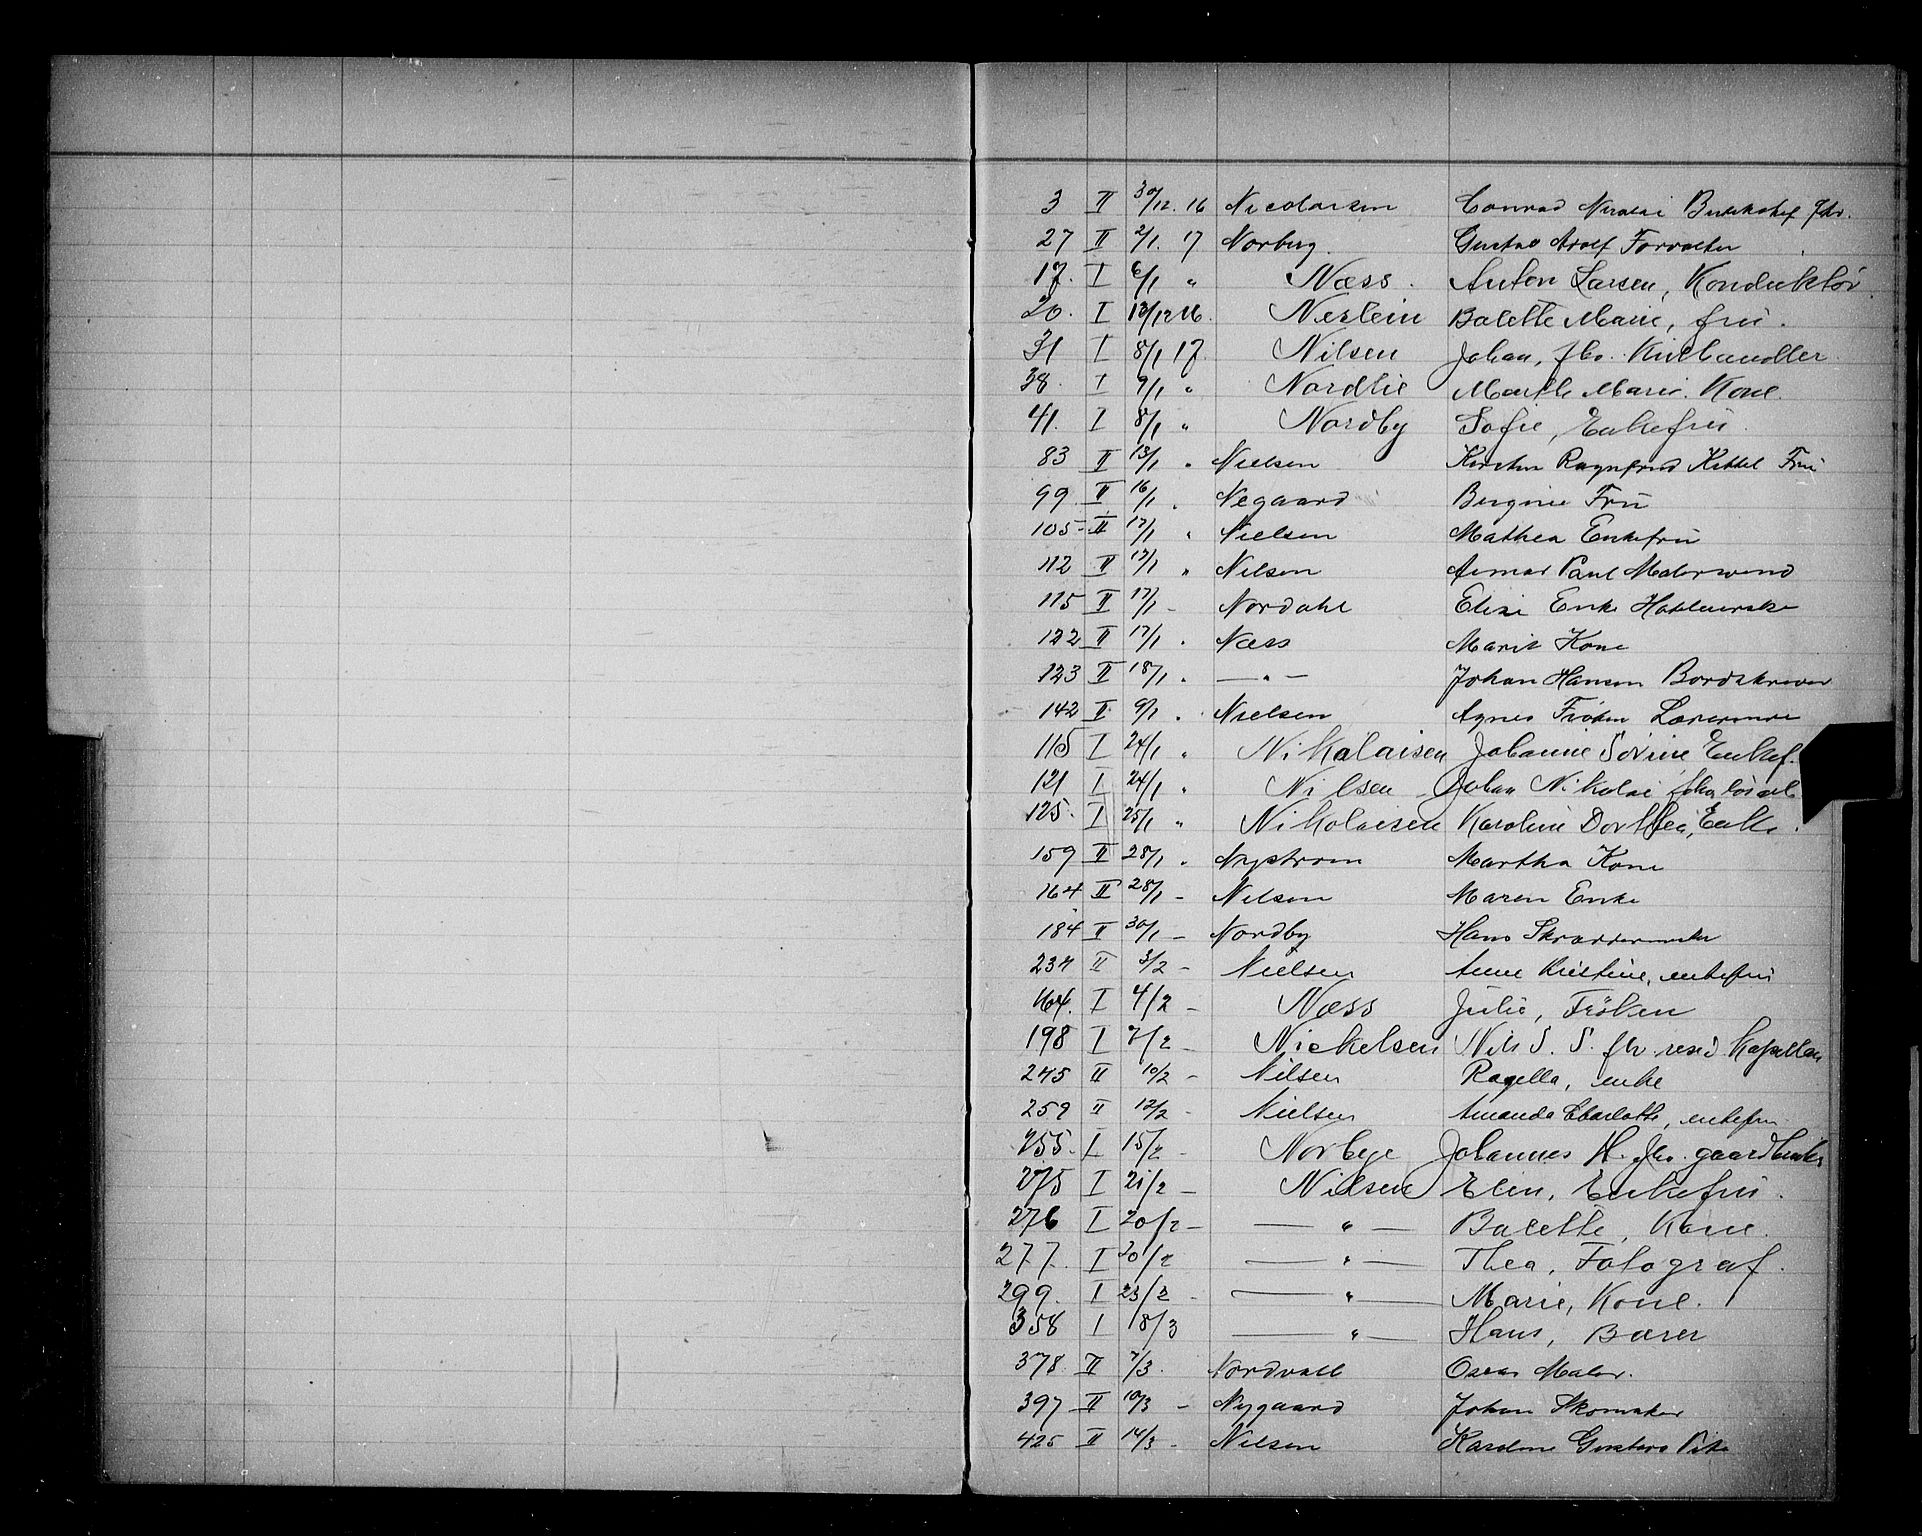 3 II 30/12. 16 Nicolaisen Conrad Nicolai fhv.
27 II 2/1. 17 Norberg. Gustav Adolf Forvalter
17. I 6/1 " Næss. Anton Larsen, Konduktør
20. I 13/12 16. Neslein Bolette Marie, fru.
31 I 8/1 17. Nilsen Johan, fhv. Kulhandler
38. I 9/1 " Nordlie Marthe Marie. Kone.
41. I 8/1 " Nordby Sofie, Enkefru.
83 II 13/1 " Nielsen Kirsten Ragnfrid Kittel Fru
99 II 16/1 " Negaard Berginie Fru
105 II 17/1 " Nielsen Mathea Enkefru
112 II 17/1 " Nilsen Paul Malersvend
115 II 17/1 - Nordahl Elise Enke
122 II 17/1 . Næss Marit Kone
123 II 18/1 . — " — Johan Hansen Bordskriver
142 II 9/1 . Nielsen Agnes Frøken Lærerinde
115 I 24/1 " Nikolaisen Johanne Sovine Enkef.
121 I 24/1 " Nilsen Johan Nikolai
125. I 25/1 " Nikolaisen Karoline Dorthea, Enke.
159 II 28/1 . Nystrøm Martha Kone
164 II 28/1 - Nilsen Maren Enke
184 II 30/1 - Nordby Hans Skræddermester
234 II 3/2 - Nielsen Anne Kristine, enkefru
164. I 4/2 - Næss Julie, Frøken
198 I 7/2 - Nickelsen Nils S. S. fhv. resid. Kapellan
245 II 10/2 - Nilsen Ragella, enke
259 II 12/2 - Nielsen Amanda Charlotte, enkefru
255. I 15/2 - Norbye Johannes H. fhv. gaardbruker
275 I 21/2 - Nilsen Elen, Enkefru.
276 I 20/2 - — " — Bolette, Kone.
277. I 20/2 — " — Thea, Fotograf.
299. I 23/2 - — " — Marie, Kone.
358 I 18/3 — " — Hans, Bærer
378. II 7/3. Nordvall Oscar Maler.
397 II 10/3 - Nygaard Johan Skomaker
425 II 14/3 - Nilsen Karoline Gustava Pike